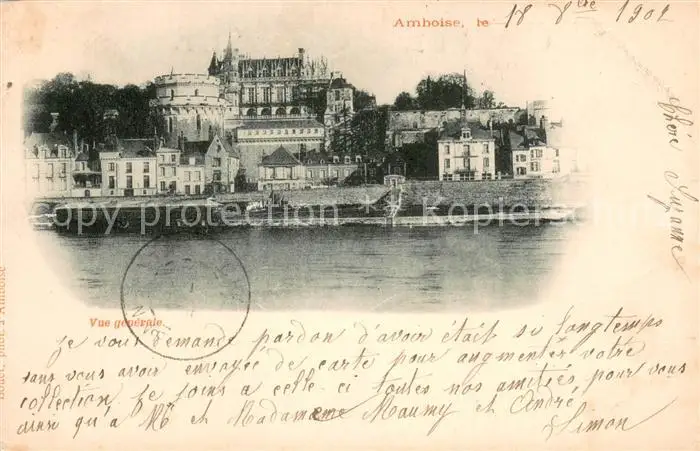 Amboise, le 18 8bre 1902
Chère Suzanne
copy protection samlerservice
Vue générale.
Je vous demande pardon d'avoir était si longtemps
sans vous avoir envoyée de carte pour augmenter votre
collection. Je joins a celle-ci toutes nos amitiés, pour vous
ainsi qu'à Mr et Madame Maumy et André.
Simon
phot. à Amboise